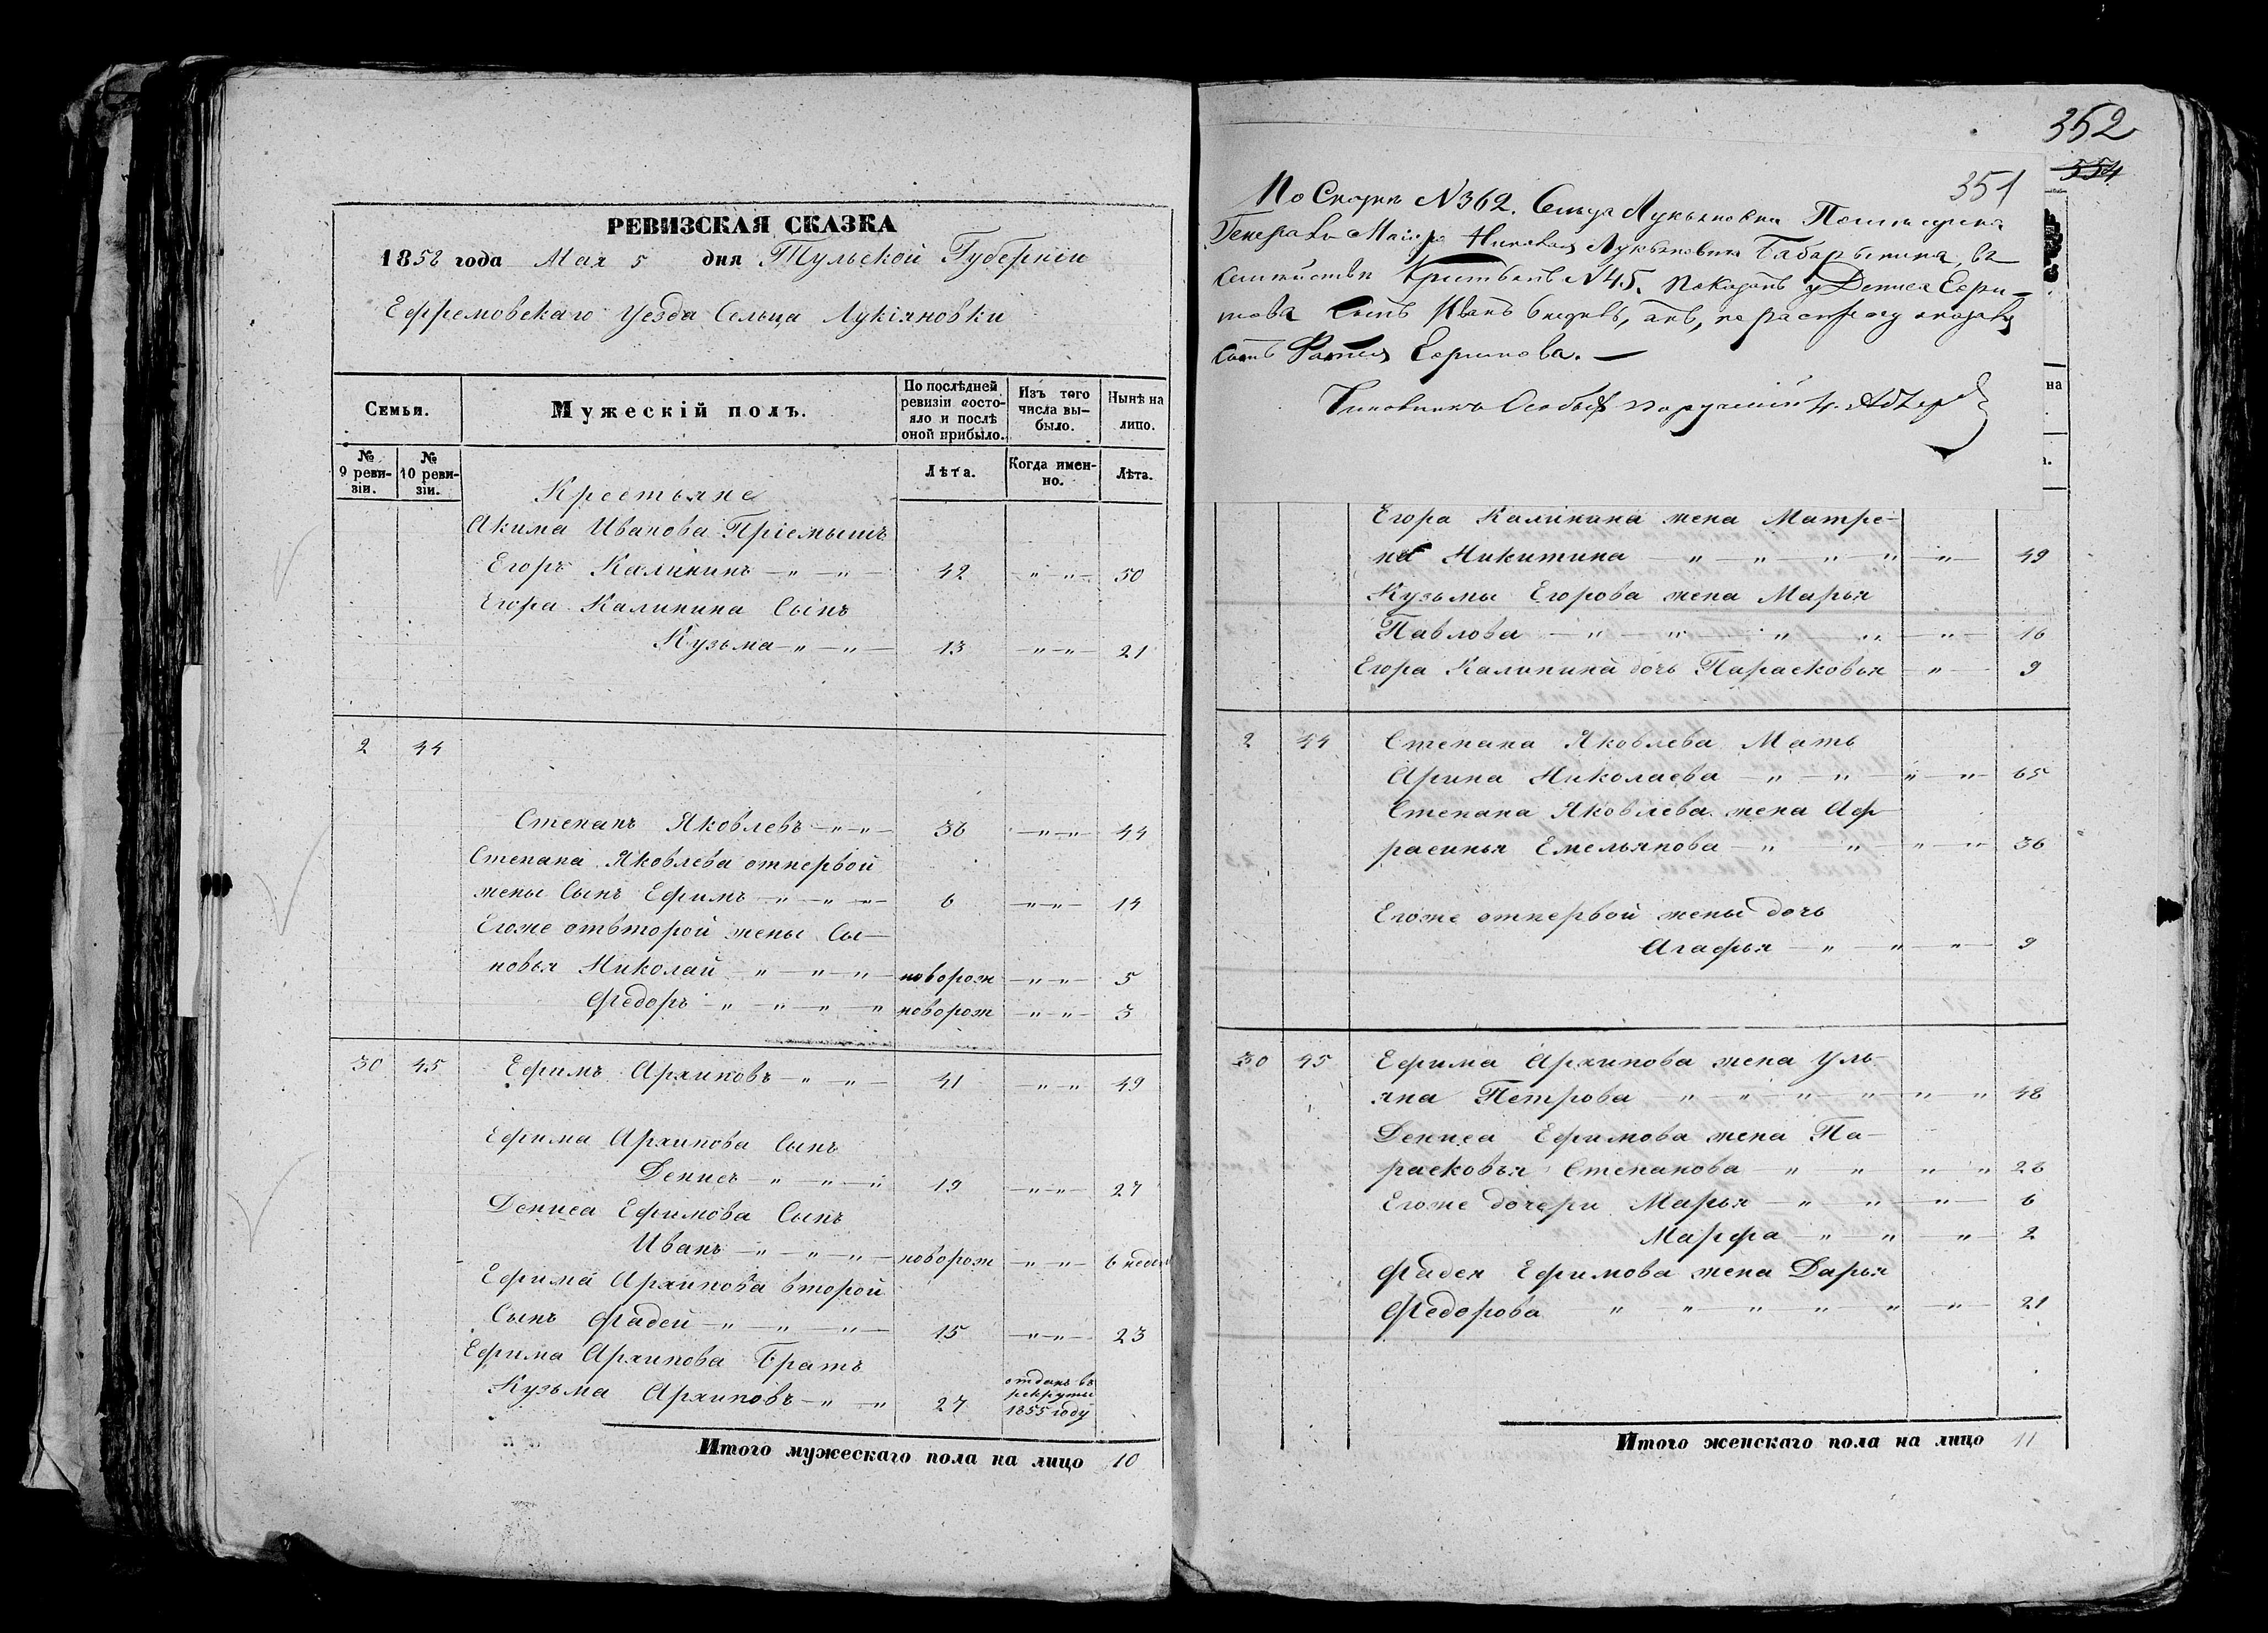 РЕВИЗСКАЯ СКАЗКА
1858 года Мая 5 дня Тульской Губерніи
Ефремовскаго Уезда Сельца Лукіяновки
Семьи.
Мужескій полъ.
По послѣдней ревизіи состояло и послѣ оной прибыло.
Изъ того числа выбыло.
Нынѣ на лицо.
№ 9 ревизіи.
№ 10 ревизіи.
Лѣта.
Когда именно.
Лѣта.
Крестьяне
Акима Иванова Пріемышъ
Егоръ Калининъ 42 50
Егора Калинина Сынъ
Кузьма 13 21
2 44
Степанъ Яковлевъ 36 44
Степана Яковлева отпервой
жены Сынъ Ефимъ 6 14
Егоже отвторой жены Сы-
новья Николай новорож 5
Федоръ новорож 3
30 45 Ефимъ Архиповъ 41 49
Ефима Архипова Сынъ
Денисъ 19 27
Дениса Ефимова Сынъ
Иванъ новорож 6 недел
Ефима Архипова второй
Сынъ Фадей 15 23
Ефима Архипова Братъ
Кузьма Архиповъ 27 отданъ въ рекруты 1855 году
Итого мужескаго пола на лицо 10
352
554
351
По Сказкѣ №362. Сельца Лукьяновки
Генералъ Маіора Лукьяновича Бабарыкина, въ
семействѣ Крестьянъ №45. показанъ у Дениса Ефи-
мова Сынъ Иванъ 6 недѣль,
сынъ Ефимова.
Чиновникъ Особыхъ порученій
на
Егора Калинина жена Матре-
на Никитина 49
Кузьмы Егорова жена Марья
Павлова 16
Егора Калинина дочь Парасковья 9
2 44 Степана Яковлева Мать
Арина Николаева 65
Степана Яковлева жена Аф-
расинья Емельянова 36
Егоже отпервой жены дочь
Агафья 9
30 45 Ефима Архипова жена Уль-
яна Петрова 48
Дениса Ефимова жена Па-
расковья Степанова 26
Егоже дочери Марья 6
Марфа 2
Фадея Ефимова жена Дарья
Федорова 21
Итого женскаго пола на лицо 11